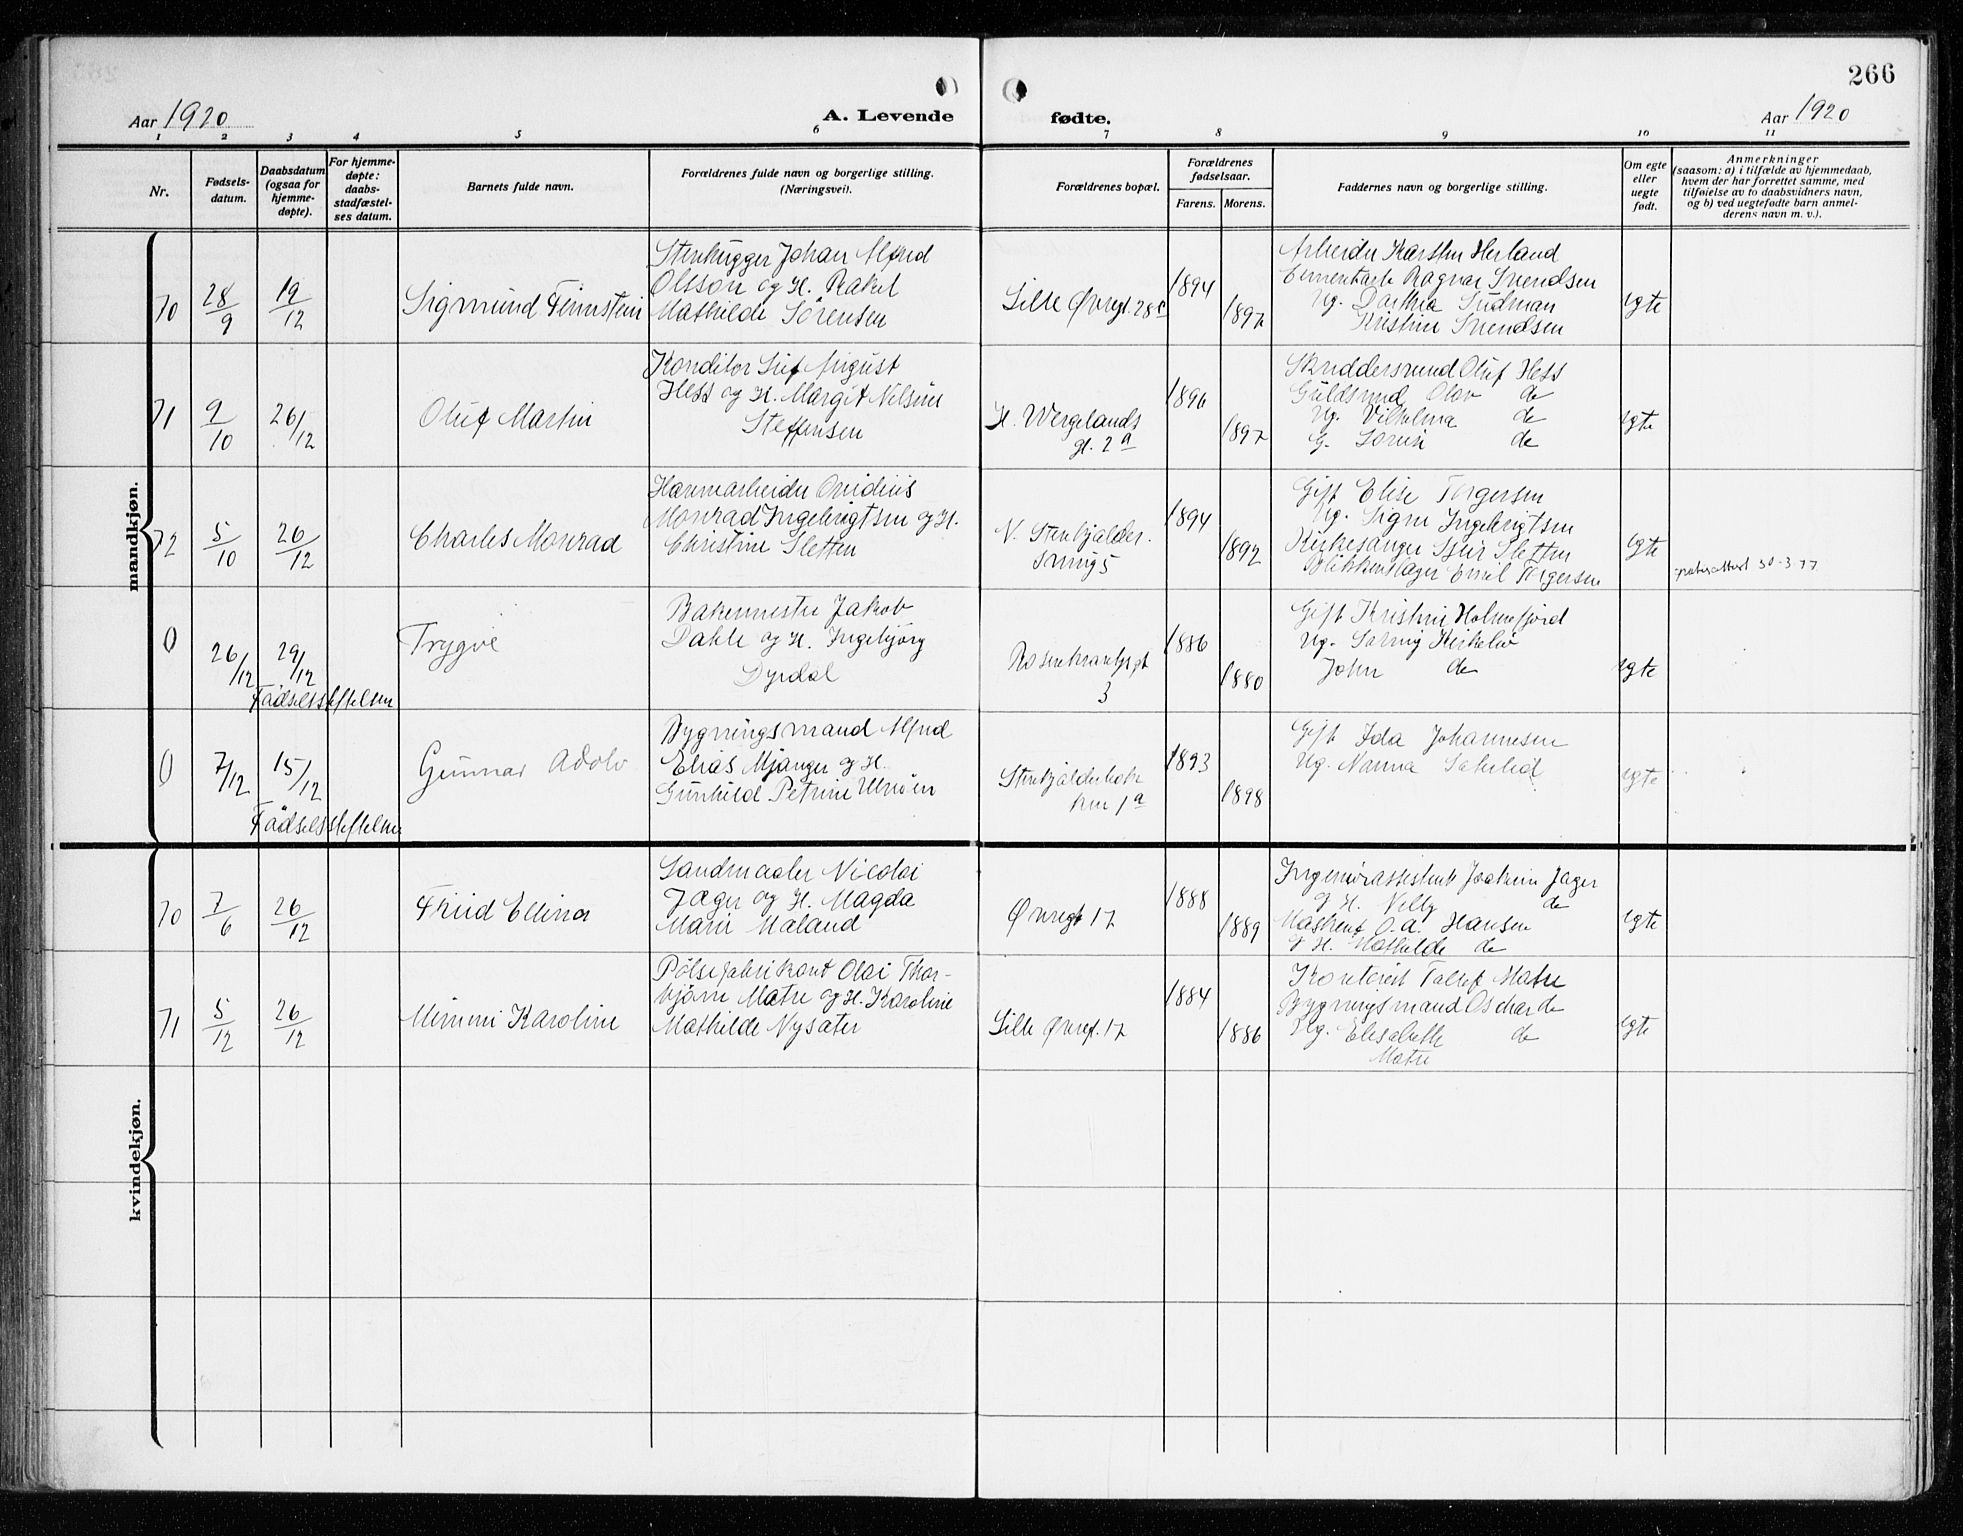 266
Aar 1920
A. Levende
fødte.
Aar 1920
1 2 3 4 5 6 7 8 9 10 11
Nr.
Fødsels-
datum.
Daabsdatum
(ogsaa for
hjemme-
døpte).
For hjemme-
døpte:
daabs-
stadfæstel-
ses datum.
Barnets fulde navn.
Forældrenes fulde navn og borgerlige stilling.
(Næringsvei).
Forældrenes bopæl.
Forældrenes
fødselsaar.
Farens. Morens.
Faddernes navn og borgerlige stilling.
Om egte
eller
uegte
født.
Anmerkninger
(saasom: a) i tilfælde av hjemmedaab,
hvem der har forrettet samme, med
tilføielse av to daabsvidners navn,
og b) ved uegtefødte barn anmel-
derens navn m. v.).
mandkjøn.
70 28/9 19/12 Sigmund Finnstein
Stenhugger Johan Alfred
Olsson og H. Rakel
Mathilde Sørensen
Lille Øvregt. 28c
1894 1897
Arbeider Karsten Herland
Cementarb Ragnar Svendsen
Ug. Dorthea Sudman
Kristine Svendsen
egte
71 9/10 26/12 Oluf Martin
Konditor Leif August
Hess og H. Margit Nelsine
Steffensen
H. Wergelands
gt. 2a
1896 1897
Skreddersvend Oluf Hess
Guldsmed Olav do
Ug. Vilhelma do
G. Lovise do
egte
72 5/10 26/12 Charles Monrad
Havnearbeider Ovidius
Monrad Ingebrigtsen og H.
Christine Sletten
N. Stenkjelder-
smug 5
1894 1892
Gift Elise Torgersen
Ug. Signe Ingebrigtsen
Kirkesanger Sjur Sletten
Blikkenslager Emil Torgersen
egte
30-3-77
0 26/12 29/12 Trygve
Fødselsstiftelsen
Bakermester Jakob
Dahle og H. Ingebjørg
Dyrdal
Rosenkrantzgt
3
1886 1880
Gift Kristine Holmefjord
Ug. Solveig Kirkebø
John do
egte
0 7/12 15/12 Gunnar Adolv
Fødselsstiftelsen
Bygningsmand Alfred
Elias Mjanger og H.
Gunhild Petrine
Stenkjelderbak
ken 1a
1893 1898
Gift Ida Johannesen
Ug. Nanna
egte
kvindekjøn.
70 7/6 26/12 Friid Ellinor
Landmaaler Nicolai
Jæger og H. Magda
Marie Maland
Øvregt 17
1888 1889
Ingeniørassistent Joakim Jæger
og H. Nelly do
Maskinist O. A. Hansen
og H. Mathilde do
egte
71 5/12 26/12 Mimmi Karoline
Pølsefabrikant Olai Thor-
bjørn Matre og H. Karoline
Mathilde Nysæter
Lille Øvregt. 17
1884 1886
Kontorist Tollef Matre
Bygningsmand Oscar do
Ug. Elisabeth do
Matre
egte